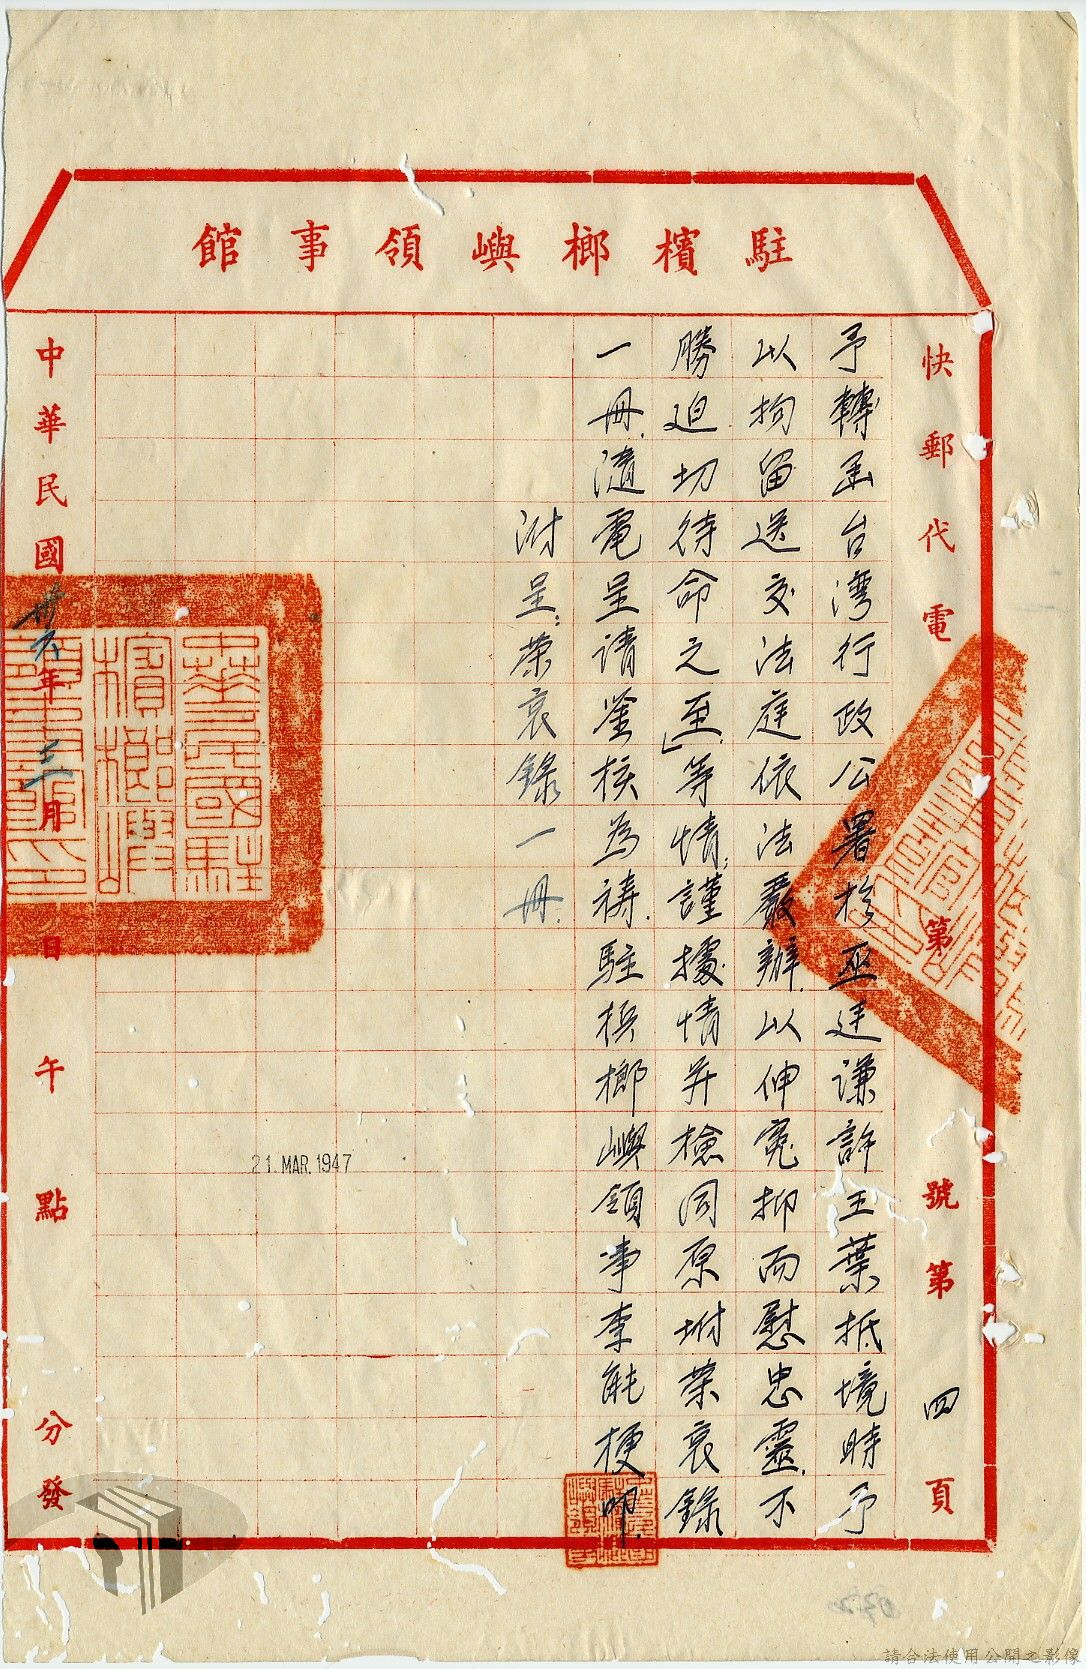 駐檳榔嶼領事館
快郵代電 第 號第四頁
予轉函台灣行政公署於巫建謙許玉葉抵境時予
以拘留送交法庭依法嚴辦.以伸冤抑而慰忠靈.不
勝迫切待命之至」等情;謹據情并檢同原坿榮哀錄
一冊.隨電呈請鉴核為禱.駐梹榔嶼領事李能梗叩.
附呈:榮哀錄一冊.
21.MAR.1947
中華民國卅六年三月 日 午 點 分發
中華民國駐檳榔嶼領事館印
請合法使用公開之影像